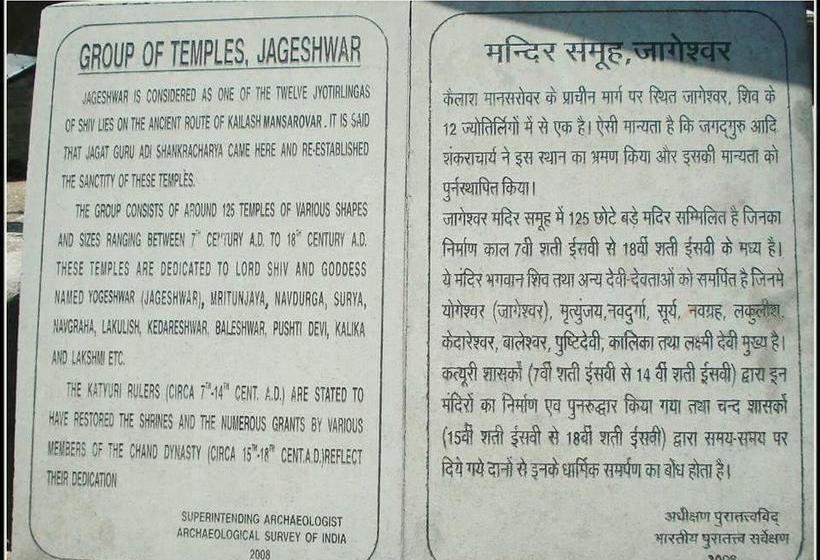 GROUP OF TEMPLES, JAGESHWAR
JAGESHWAR IS CONSIDERED AS ONE OF THE TWELVE JYOTIRLINGAS
OF SHIV LIES ON THE ANCIENT ROUTE OF KAILASH MANSAROVAR. IT IS SAID
THAT JAGAT GURU ADI SHANKRACHARYA CAME HERE AND RE-ESTABLISHED
THE SANCTITY OF THESE TEMPLES.
THE GROUP CONSISTS OF AROUND 125 TEMPLES OF VARIOUS SHAPES
AND SIZES RANGING BETWEEN 7TH CENTURY A.D. TO 18TH CENTURY A.D.
THESE TEMPLES ARE DEDICATED TO LORD SHIV AND GODDESS
NAMED YOGESHWAR (JAGESHWAR), MRITUNJAYA, NAVDURGA, SURYA,
NAVGRAHA, LAKULISH, KEDARESHWAR, BALESHWAR, PUSHTI DEVI, KALIKA
AND LAKSHMI ETC.
THE KATYURI RULERS (CIRCA 7TH-14TH CENT. A.D.) ARE STATED TO
HAVE RESTORED THE SHRINES AND THE NUMEROUS GRANTS BY VARIOUS
MEMBERS OF THE CHAND DYNASTY (CIRCA 15TH-18TH CENT.A.D.)REFLECT
THEIR DEDICATION
SUPERINTENDING ARCHAEOLOGIST
ARCHAEOLOGICAL SURVEY OF INDIA
2008
मन्दिर समूह,जागेश्वर
कैलाश मानसरोवर के प्राचीन मार्ग पर स्थित जागेश्वर, शिव के
12 ज्योतिर्लिगों में से एक है। ऐसी मान्यता है कि जगद्गुरु आदि
शंकराचार्य ने इस स्थान का भ्रमण किया और इसकी मान्यता को
पुर्नस्थापित किया।
जागेश्वर मदिर समूह में 125 छोटे बड़े मदिर सम्मिलित है जिनका
निर्माण काल 7वी शती ईसवी से 18वीं शती ईसवी के मध्य है।
ये मंदिर भगवान शिव तथा अन्य देवी-देवताओं को समर्पित है जिनमे
योगेश्वर (जागेश्वर), मृत्युंजय,नवदुर्गा, सूर्य, नवग्रह, लकुलीश,
केदारेश्वर, बालेश्वर, पुष्टिदेवी, कालिका तथा लक्ष्मी देवी मुख्य है।
कत्यूरी शासकों (7वीं शती ईसवी से 14 वीं शती ईसवी) द्वारा इन
मंदिरों का निर्माण एव पुनरुद्धार किया गया तथा चन्द शासकों
(15वीं शती ईसवी से 18वीं शती ईसवी) द्वारा समय-समय पर
दिये गये दानों से इनके धार्मिक समर्पण का बोध होता है।
अधीक्षण पुरातत्त्वविद्
भारतीय पुरातत्त्व सर्वेक्षण
2008